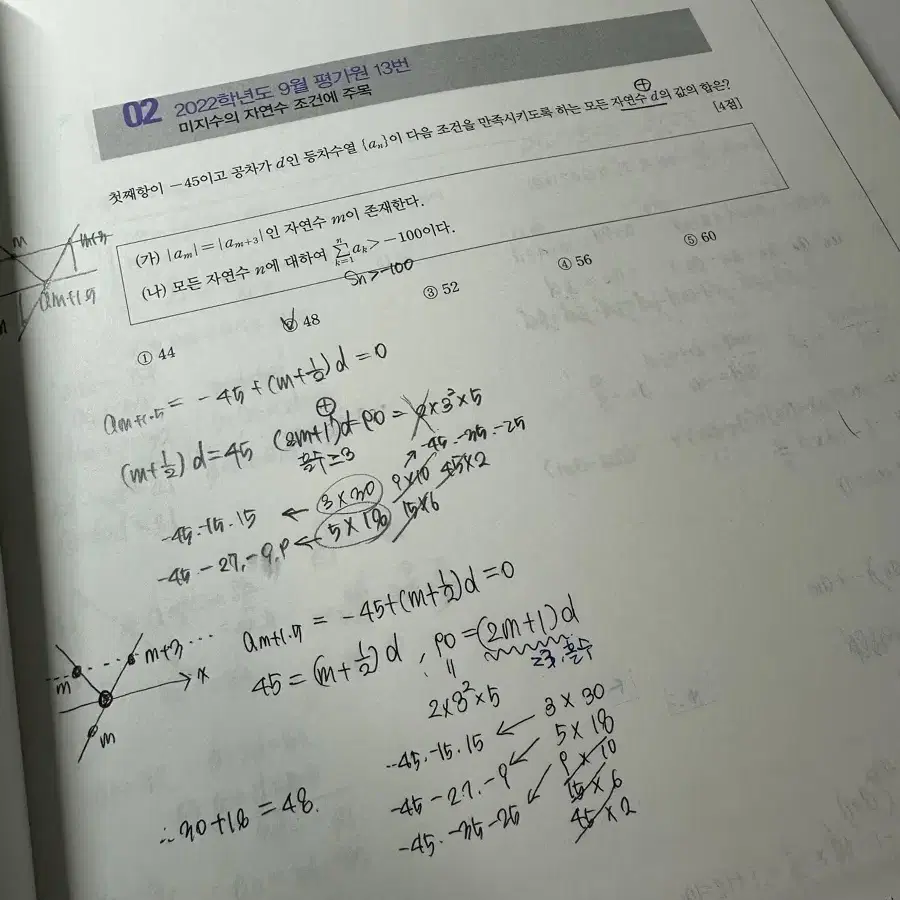 02 2022학년도 9월 평가원 13번
미지수의 자연수 조건에 주목
⊕
첫째항이 −45이고 공차가 d인 등차수열 {aₙ}이 다음 조건을 만족시키도록 하는 모든 자연수 d의 값의 합은?
[4점]
(가) |aₘ|=|aₘ₊₃|인 자연수 m이 존재한다.
(나) 모든 자연수 n에 대하여 ∑ₖ₌₁ⁿ aₖ > −100이다.
Sn > -100
① 44
② 48
③ 52
④ 56
⑤ 60
m
m+3
am+1.5
am+1.5 = -45+(m+½)d=0
⊕
(m+½)d=45 (2m+1)d=90=2×3²×5
홀수≥3
-45. -35. -25
-45. -15. 15 ← 3×30 9×10 45×2
-45. -27. -9. 9 ← 5×18 15×6
m
m+3 ...
x
m
am+1.5 = -45+(m+½)d=0
45=(m+½)d, 90=(2m+1)d
≥3. 홀수
2×3²×5
-45. -15. 15 ← 3×30
-45 -27. -9 ← 5×18
-45. -35 -25 ← 9×10
15×6
45×2
∴30+18=48.